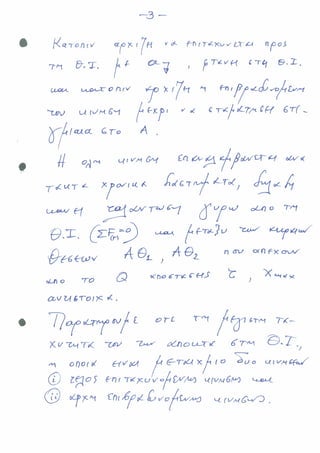 -3-
Κατοπιν αρχιζει να επιταχυνεται προς
τη Θ.Ι. με α , φτανει στη Θ.Ι.
και κατοπιν αρχιζει η επιβραδυνομενη
του κινηση μεχρι να σταματησει στι-
γμιαια στο Α.
Η ολη κινηση επαναλαμβανεται ανα
τακτα χρονικα διαστηματα, δηλαδη
κανει ταλαντωση γυρω απο τη
Θ.Ι. (ΣF=0) και μεταξυ των ακραιων
Θεσεων ΑΘ1, ΑΘ2 που απεχουν
απο το Ο αποστασεις , Χmax
αντιστοιχα.
Παρατηρουμε οτι τη μεγιστη τα-
χυτητα του την αποκτα στη Θ.Ι.,
η οποια ειναι μεταιχμιο δυο κινησεων
i τελος επιταχυνομενης κινησης και
ii αρχη επιβραδυνομενης κινησης.